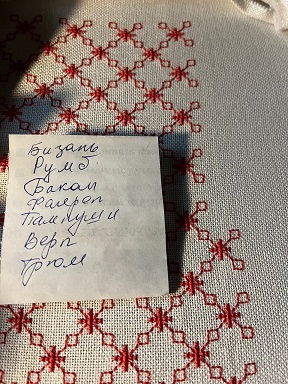 Бизань
Румб
Бакан
Фалреп
Пампуши
Верп
Трюм